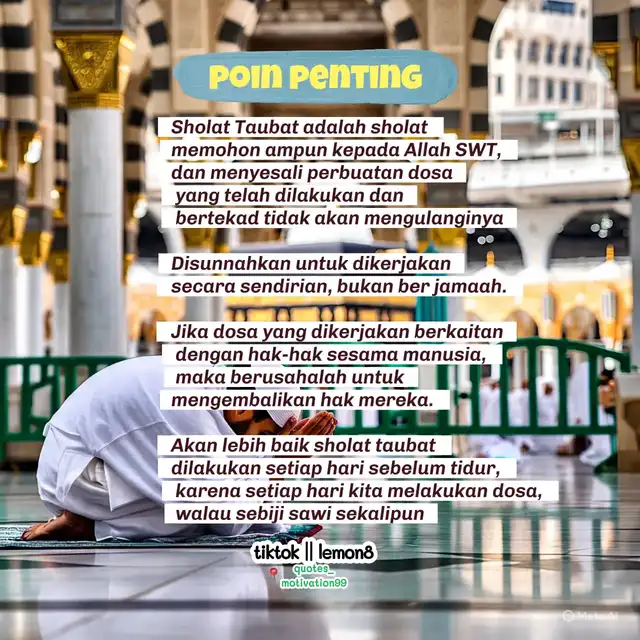 Poin Penting
Sholat Taubat adalah sholat
memohon ampun kepada Allah SWT,
dan menyesali perbuatan dosa
yang telah dilakukan dan
bertekad tidak akan mengulanginya
Disunnahkan untuk dikerjakan
secara sendirian, bukan ber jamaah.
Jika dosa yang dikerjakan berkaitan
dengan hak-hak sesama manusia,
maka berusahalah untuk
mengembalikan hak mereka.
Akan lebih baik sholat taubat
dilakukan setiap hari sebelum tidur,
karena setiap hari kita melakukan dosa,
walau sebiji sawi sekalipun
tiktok || lemon8
quotes_
motivation99